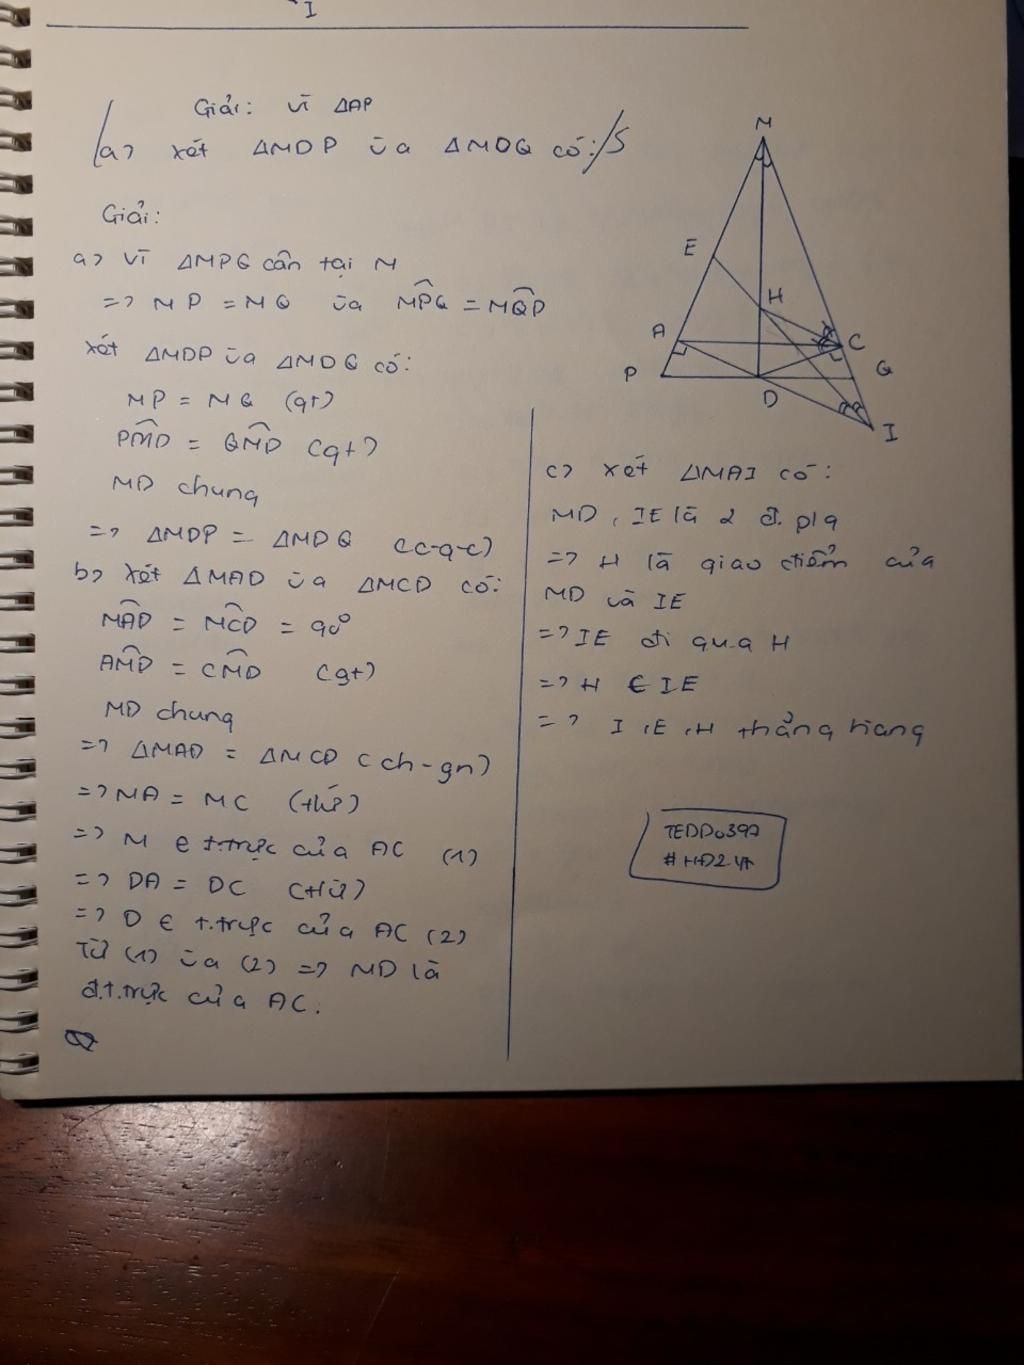 I
Giải: Vì ΔAP
a) xét ΔMDP và ΔMDQ có:/S
Giải:
a) Vì ΔMPQ cân tại M
=> MP = MQ và MPQ̂ = MQP̂
Xét ΔMDP và ΔMDQ có:
MP = MQ (gt)
PMD̂ = QMD̂ (gt)
MD chung
=> ΔMDP = ΔMDQ (c-g-c)
b) Xét ΔMAD và ΔMCD có:
MAD̂ = MCD̂ = 90°
AMD̂ = CMD̂ (gt)
MD chung
=> ΔMAD = ΔMCD (ch-gn)
=> MA = MC
=> M ∈ t.trực của AC (1)
=> DA = DC
=> D ∈ t.trực của AC (2)
Từ (1) và (2) => MD là
đ.t.trực của AC.
M
E
H
A
C
P
Q
D
I
c) xét ΔMAI có:
MD, IE là 2 đ. p/g
=> H là giao điểm của
MD và IE
=> IE đi qua H
=> H ∈ IE
=> I, E, H thẳng hàng
TEDD0397